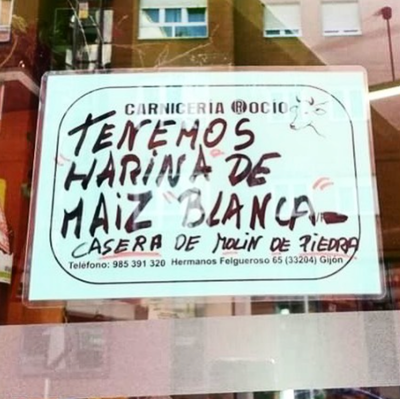 CARNICERIA ROCIO
TENEMOS
"HARINA" DE
MAIZ "BLANCA"
CASERA DE MOLIN DE PIEDRA
Teléfono: 985 391 320 Hermanos Felgueroso 65 (33204) Gijón